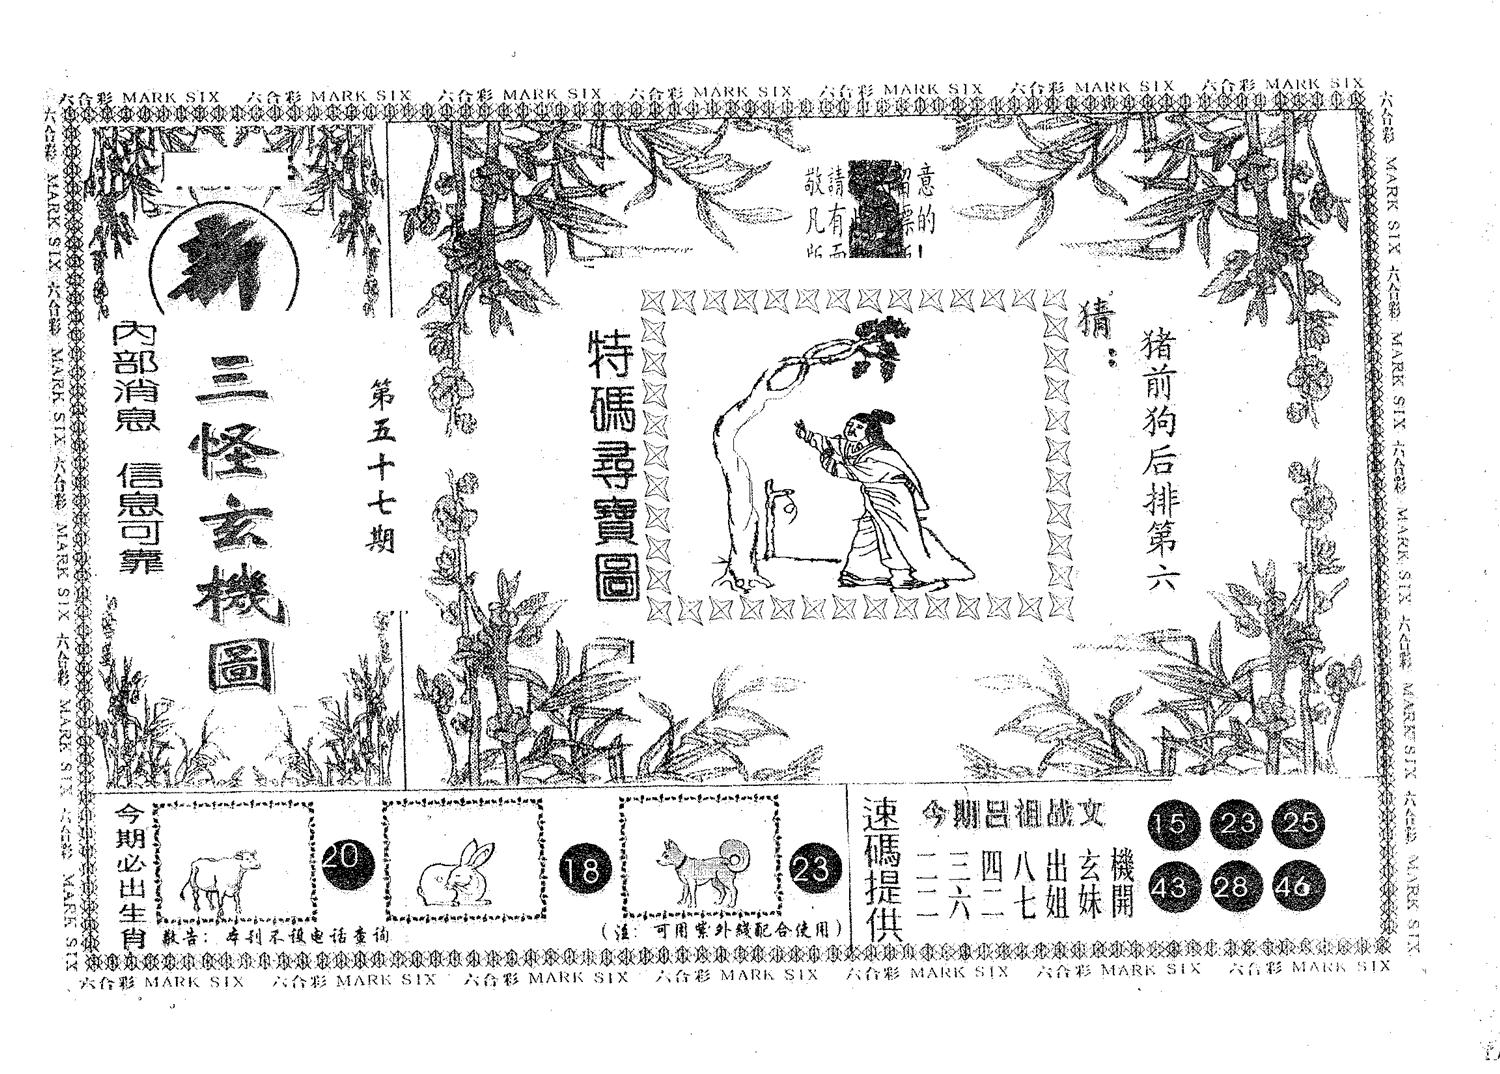 六合彩 MARK SIX 六合彩 MARK SIX 六合彩 MARK SIX 六合彩 MARK SIX 六合彩 MARK SIX 六合彩 MARK SIX 六合彩 MARK SIX
六合彩 MARK SIX 六合彩 MARK SIX 六合彩 MARK SIX 六合彩 MARK SIX 六合彩 MARK SIX
新
內部消息 信息可靠
三怪玄機圖
第五十七期
敬請 留意
凡有 標的
特碼尋寶圖
猜:
猪前狗后排第六
今期必出生肖
20
18
23
敬告: 本刊不设电话查询
(注: 可用紫外线配合使用)
速碼提供
今期吕祖战文
二三四八出玄機
二六二七姐妹開
15 23 25
43 28 46
六合彩 MARK SIX 六合彩 MARK SIX 六合彩 MARK SIX 六合彩 MARK SIX 六合彩 MARK SIX
六合彩 MARK SIX 六合彩 MARK SIX 六合彩 MARK SIX 六合彩 MARK SIX 六合彩 MARK SIX 六合彩 MARK SIX 六合彩 MARK SIX